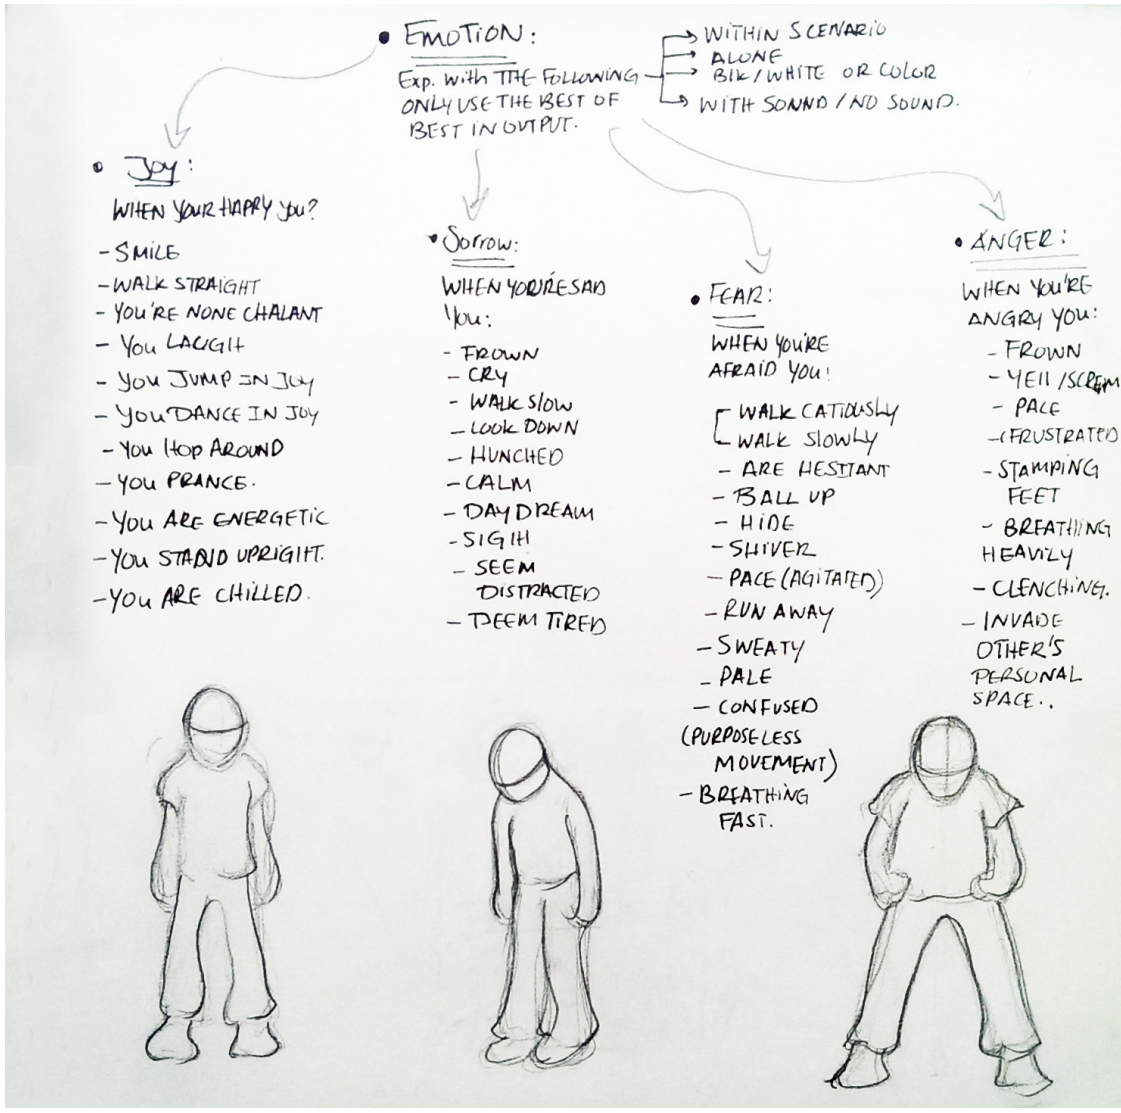 • EMOTION:
Exp. With THE FOLLOWING
ONLY USE THE BEST OF
BEST IN OUTPUT.
WITHIN SCENARIO
ALONE
BlK/WHITE OR COLOR
WITH SOUND / NO SOUND.
• Joy:
WHEN YOUR HAPPY you?
- SMILE
- WALK STRAIGHT
- YOU'RE NONE CHALANT
- YOU LAUGH
- YOU JUMP IN JOY
- YOU DANCE IN JOY
- YOU HOP AROUND
- YOU PRANCE.
- YOU ARE ENERGETIC
- YOU STAND UPRIGHT.
- YOU ARE CHILLED.
• Sorrow:
WHEN YOU'RE SAD
YOU:
- FROWN
- CRY
- WALK SLOW
- LOOK DOWN
- HUNCHED
- CALM
- DAY DREAM
- SIGH
- SEEM
DISTRACTED
- SEEM TIRED
• FEAR:
WHEN YOU'RE
AFRAID YOU:
WALK CATIOUSLY
WALK SLOWLY
- ARE HESITANT
- BALL UP
- HIDE
- SHIVER
- PACE (AGITATED)
- RUN AWAY
- SWEATY
- PALE
- CONFUSED
(PURPOSELESS
MOVEMENT)
- BREATHING
FAST.
• ANGER:
WHEN YOU'RE
ANGRY YOU:
- FROWN
- YELL / SCREAM
- PACE
- (FRUSTRATED
- STAMPING
FEET
- BREATHING
HEAVILY
- CLENCHING.
- INVADE
OTHER'S
PERSONAL
SPACE..